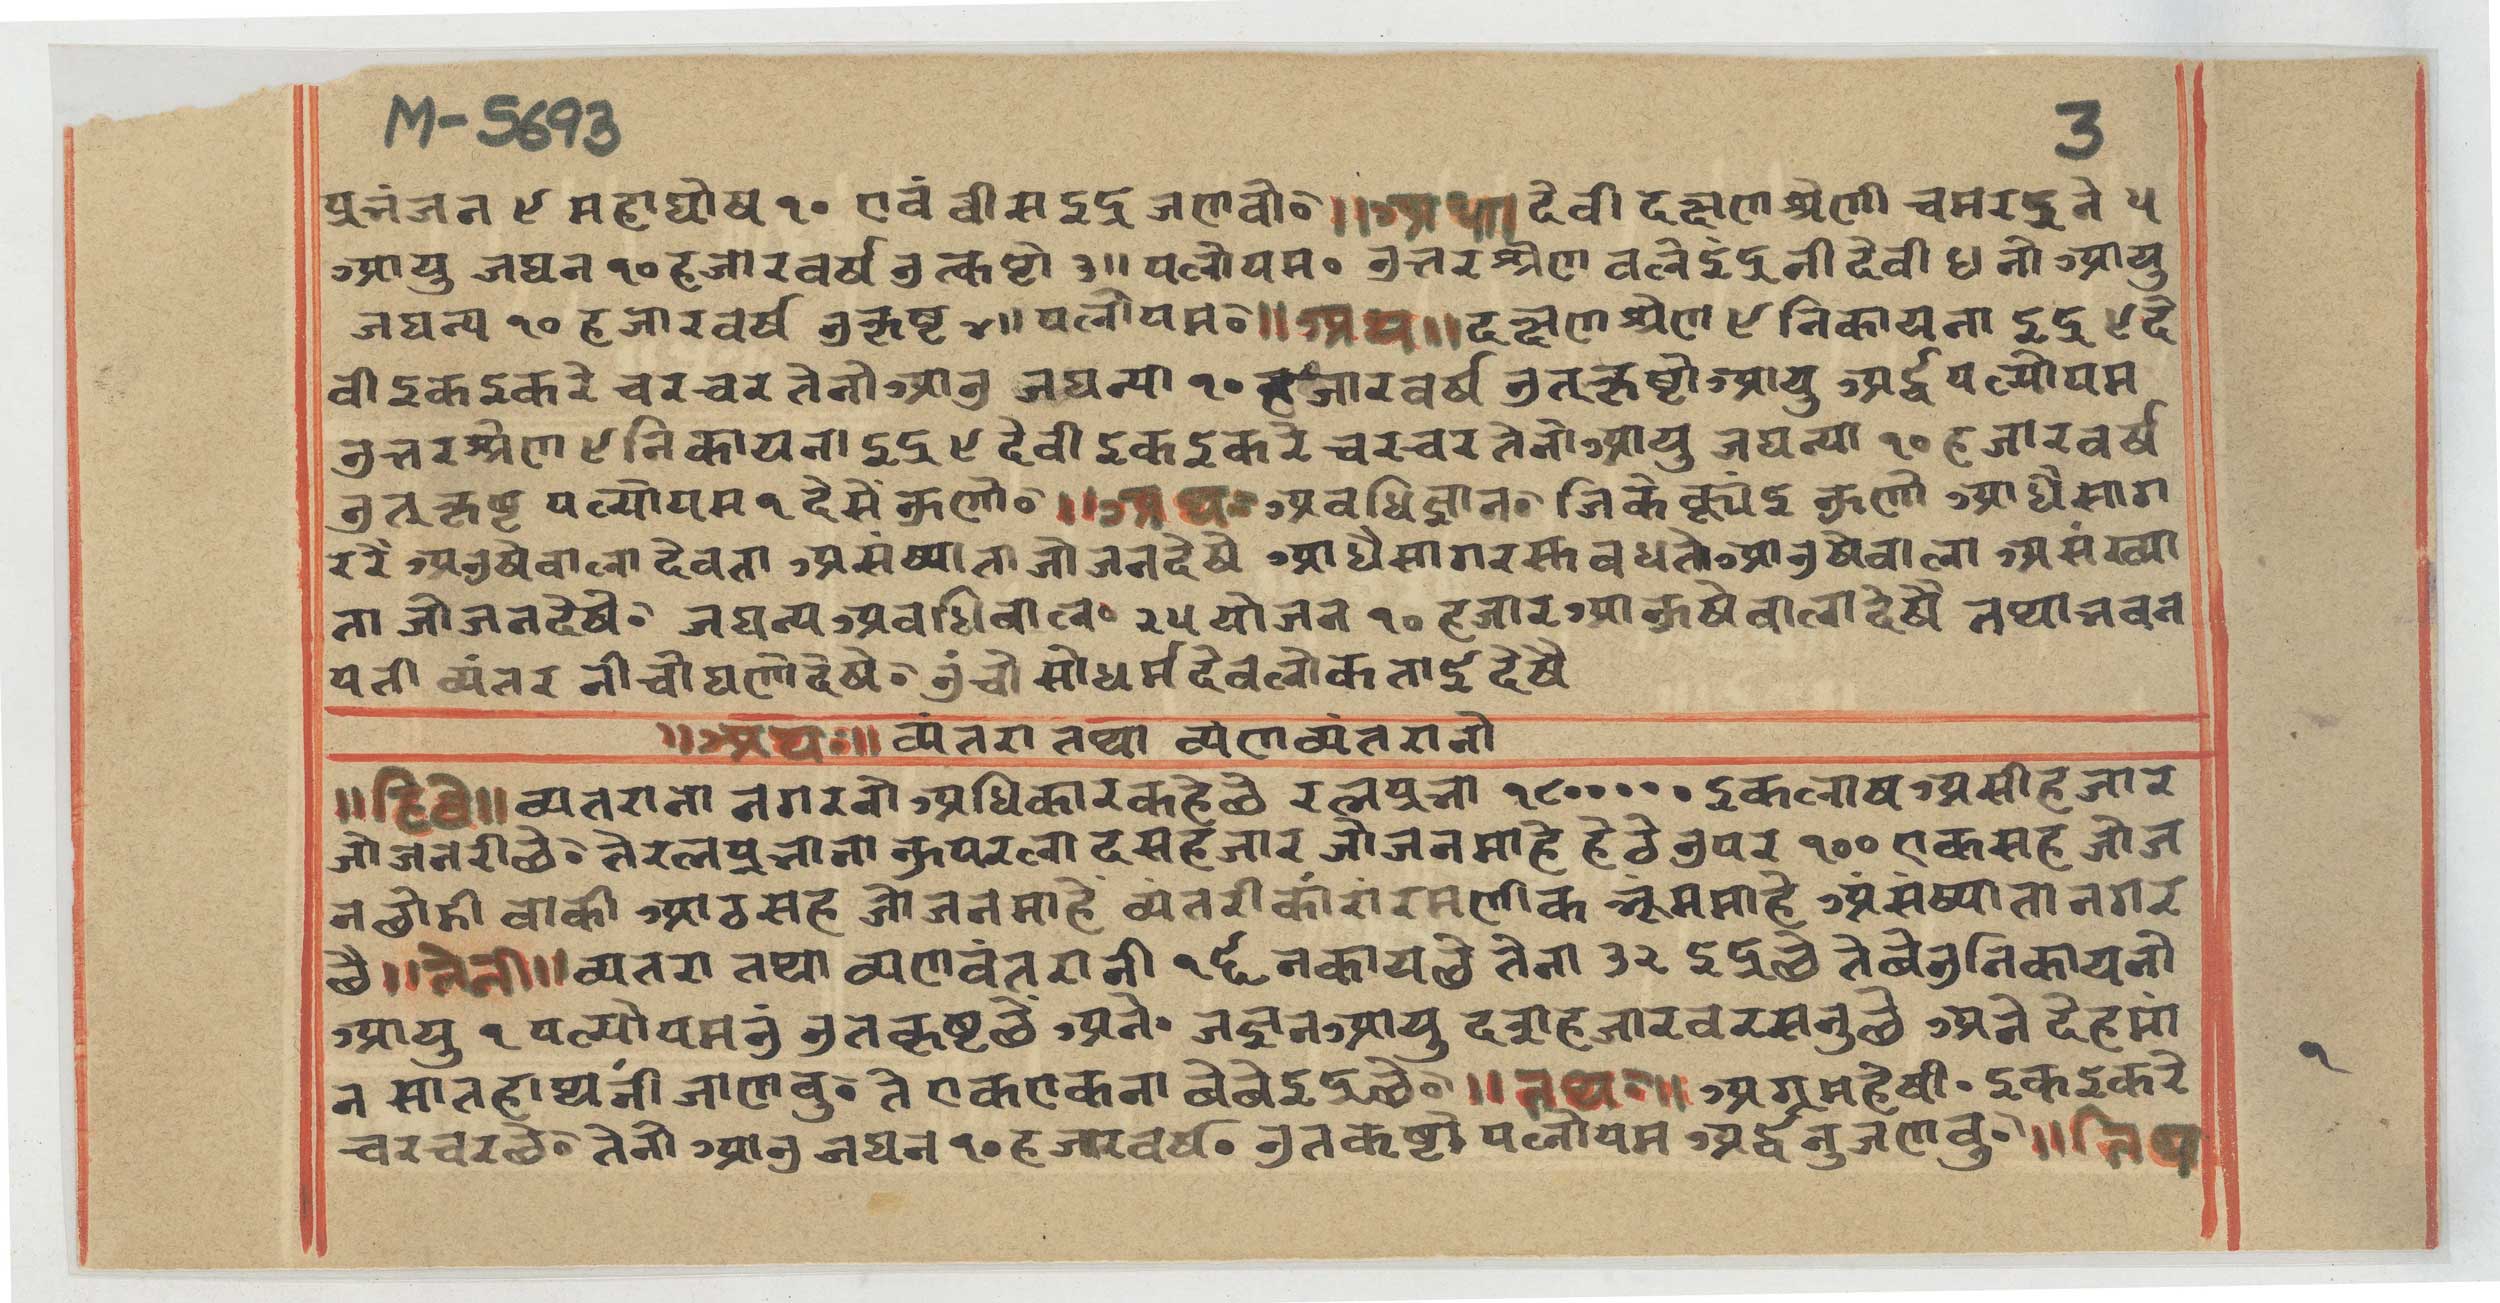 M-5693
3
प्रभंजन ९ महाघोष १० एवं वीस इंद्र जणवो० ॥अथ॥ देवी दक्षण श्रेणी चमरइंद्रने ५
आयु जघन १० हजारवर्ष उत्कष्टो ३॥ पलोपम० उत्तर श्रेण बलेइंद्रनी देवीयानो आयु
जघन्य १० हजारवर्ष उत्कृष्ट ४॥ पलोपम० ॥अथ॥ दक्षण श्रेण ९ निकायना इंद्र ९ दे
वी इक इकरे चर चर तेनो आउ जघन्या १० हजारवर्ष उत्कृष्टो आयु अर्द्ध पल्योपम
उत्तर श्रेण ९ निकायना इंद्र ९ देवी इक इकरे चर चर तेनो आयु जघन्या १० हजारवर्ष
उत्कृष्ट पल्योपम १ देसें ऊणो० ॥अथ॥ अवधिज्ञान० जिके ऊणो आधै साग
ररै अउषेवाला देवता असंष्याता जोजन देषे आधै सागर वधते आउषेवाला असंख्या
ता जोजन देषे० जघन्य अवधिवाल० २५ योजन १० हजार आऊषेवाला देषै तथा भवन
पती व्यंतर नीचो घणो देषे० उंचो सोधर्म देवलोक ताई देषै
॥अथः॥ व्यंतरा तथा व्यणव्यंतरानो
॥हिवै॥ व्यतरानो नगरनो अधिकार कहेछे रत्नप्रभा १८००००० इकलाष असी हजार
जोजनरीछे० ते रत्नप्रभाना ऊपरला दस हजार जोजन माहे हेठे उपर १०० एकसह जोज
न छोडी बाकी आठसह जोजन माहें व्यंतरीकांरां रमणीक भूम माहे असंष्याता नगर
छै ॥तेनी॥ व्यतरा तथा व्यणवंतरानी १६ नकायछे तेना ३२ इंद्रछे ते बेउ निकायनो
आयु १ पल्योपमनुं उतकृष्टछें अने० जघन आयु दस हजार वरसनुछे अने देहमां
न सात हाथनी जाणवु० ते एक एकना बे बे इंद्रछे० ॥तथः॥ अग्रमहेषी० इक इकरे
चर चर छे० तेनो आउ जघन १० हजारवर्ष० उतकष्टो पलोपम अर्द्धनु जणवु० ॥तिथ
१